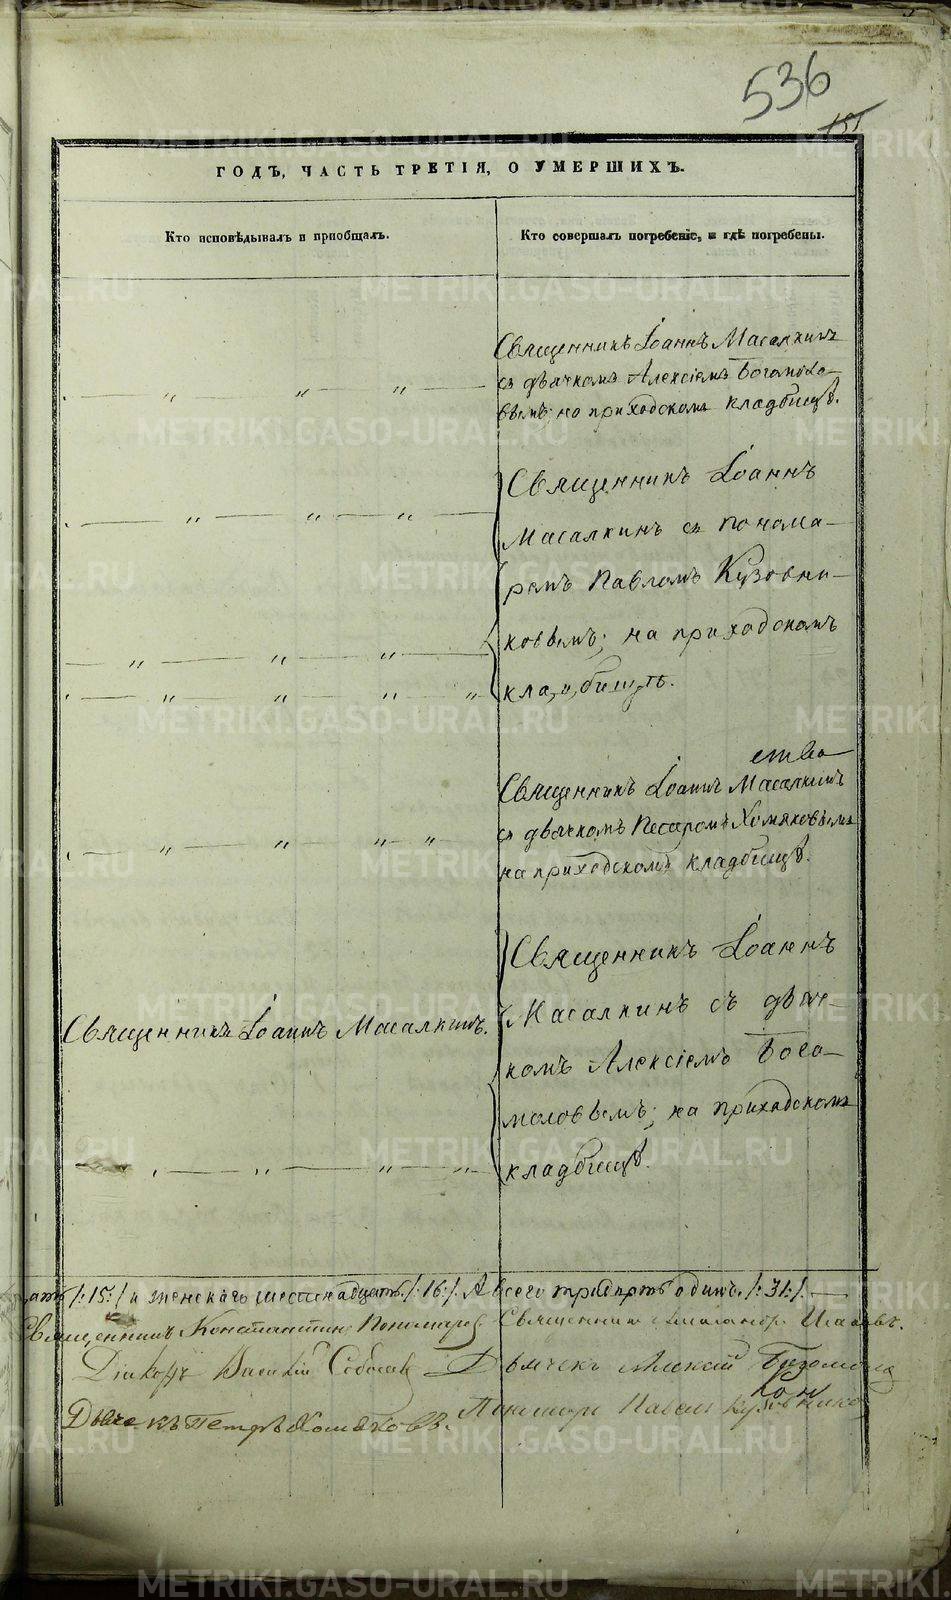 536
ГОДЪ, ЧАСТЬ ТРЕТІЯ, О УМЕРШИХЪ.
Кто исповѣдывалъ и пріобщалъ.
Кто совершалъ погребеніе, и гдѣ погребены.
Священникъ Іоаннъ Масалкинъ
съ дьячкомъ Алексіемъ Богомоло-
вымъ; на приходскомъ кладбищѣ.
Священникъ Іоаннъ
Масалкинъ съ понома-
ремъ Павломъ Кузовни-
ковымъ; на приходскомъ
кладбищѣ.
Священникъ Іоаннъ Масалкинъ
съ дьячкомъ Хомяковымъ
на приходскомъ кладбищѣ.
Священникъ Іоаннъ Масалкинъ.
Священникъ Іоаннъ
Масалкинъ съ дьяч-
комъ Алексіемъ Бого-
моловымъ; на приходскомъ
кладбищѣ.
/:15:/ и женскаго шестнадцать /:16:/. А всего тридцать одинъ. /:31:/.
Священникъ Константинъ Пономаревъ Священникъ
Діаконъ Василій Дьячекъ Алексій Богомолов
Дьячекъ Петръ Хомяковъ. Пономарь Павелъ Кузовников
METRIKI.GASO-URAL.RU